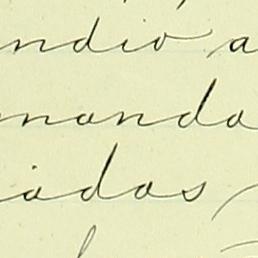 ndio a
manda
iadas